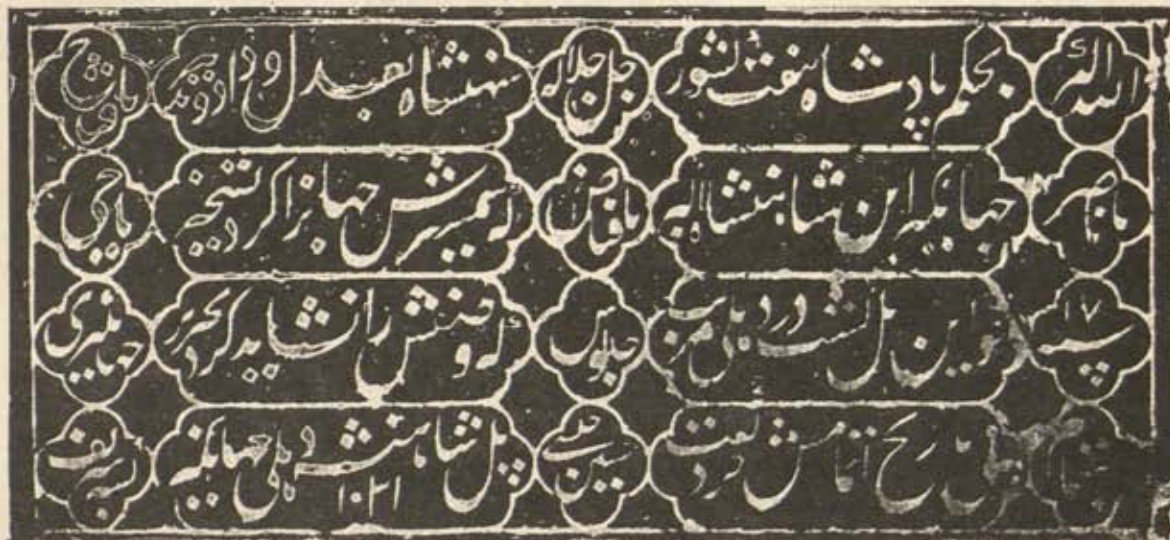 الله اکبر بحکم پادشاه هفت کشور جل جلاله شهنشاه بعدل و داد و تدبیر یا فتاح
یا ناصر جهانگیر ابن شاهنشاه اکبر یا فیاض که شمشیرش جهانرا کرد تسخیر یا حی
سنه ١٧ چو این پل گشت در دهلی مرتب جلوس که وصفش را نشاید کرد تحریر جهانگیری
پی تاریخ اتمامش خرد گفت حسین پل شاهنشه دهلی جهانگیر ١٠٣١ شریف